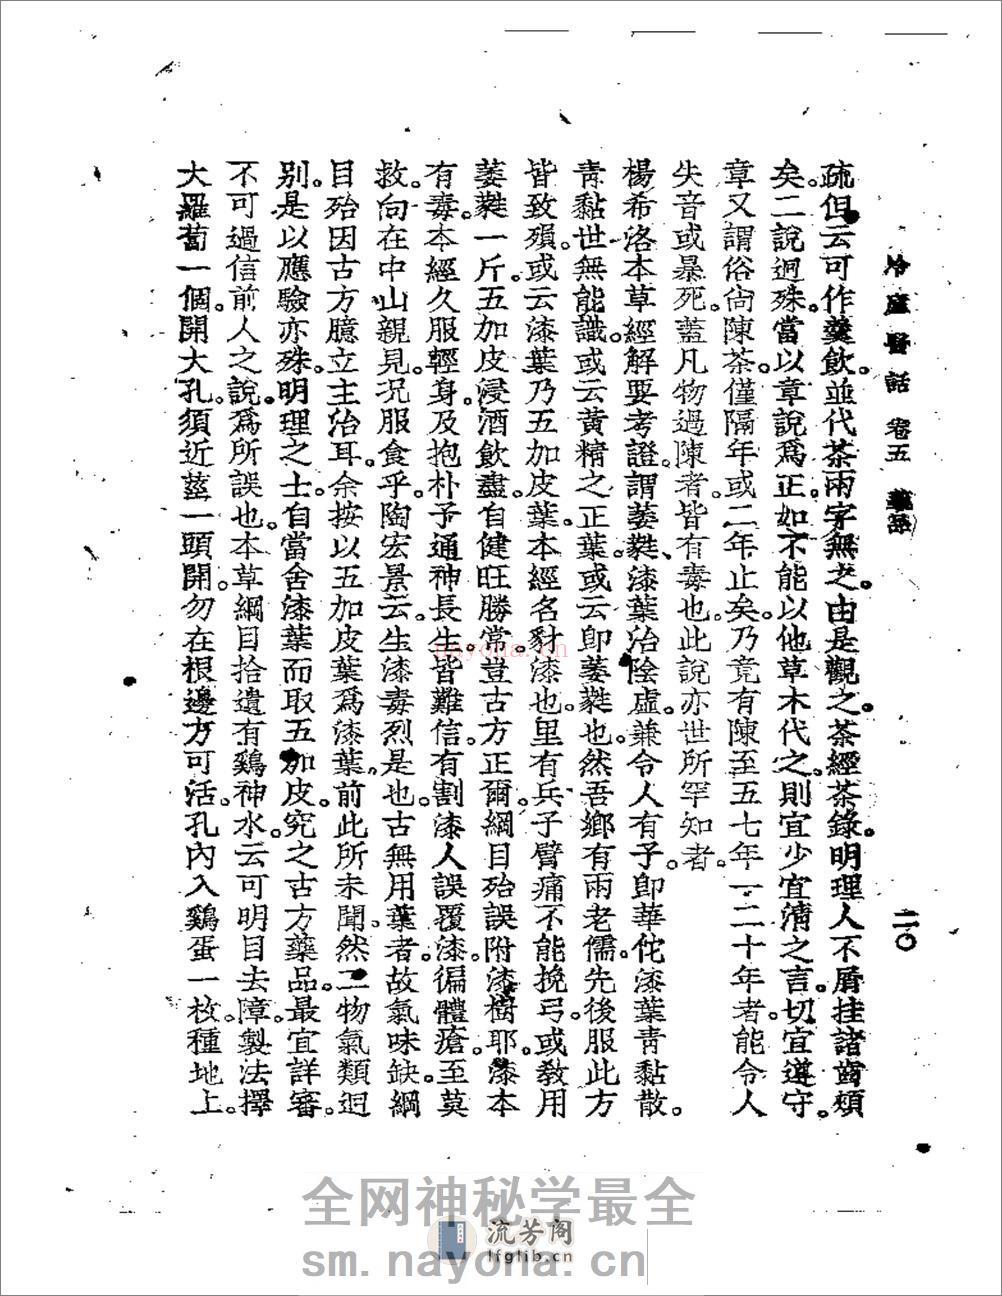 冷廬醫話 卷五 藥品
二〇
疏但云可作羹飲。並代茶兩字無之。由是觀之。茶經茶錄。明理人不屑挂諸齒頰
矣。二說迥殊。當以章說為正。如不能以他草木代之。則宜少宜清之言。切宜遵守。
章又謂俗尙陳茶。僅隔年或二年止矣。乃竟有陳至五七年一二十年者。能令人
失音或暴死。蓋凡物過陳者。皆有毒也。此說亦世所罕知者。
楊希洛本草經解要考證。謂萎蕤、漆葉治陰虛。兼令人有子。卽華佗漆葉靑黏散。
靑黏世無能識。或云黃精之正葉。或云卽萎蕤也。然吾鄉有兩老儒。先後服此方
皆致殞。或云漆葉乃五加皮葉。本經名豺漆也。里有兵子臂痛不能挽弓。或敎用
萎蕤一斤。五加皮浸酒飲盡。自健旺勝常。豈古方正爾。綱目殆誤附漆樹耶。漆本
有毒。本經久服輕身。及抱朴子通神長生。皆難信。有割漆人誤覆漆。徧體瘡。至莫
救。向在中山親見。况服食乎。陶宏景云。生漆毒烈是也。古無用葉者。故氣味缺。綱
目殆因古方臆立主治耳。余按以五加皮葉爲漆葉。前此所未聞。然二物氣類迥
別。是以應驗亦殊。明理之士。自當舍漆葉而取五加皮。究之古方藥品。最宜詳審。
不可過信前人之說。爲所誤也。本草綱目拾遺有鷄神水。云可明目去障。製法擇
大羅蔔一個。開大孔。須近莖一頭開。勿在根邊方可活。孔內入鷄蛋一枚。種地上。
nayona.cn
全网神秘学最全
流芳阁
lfglib.cn
sm.nayona.cn